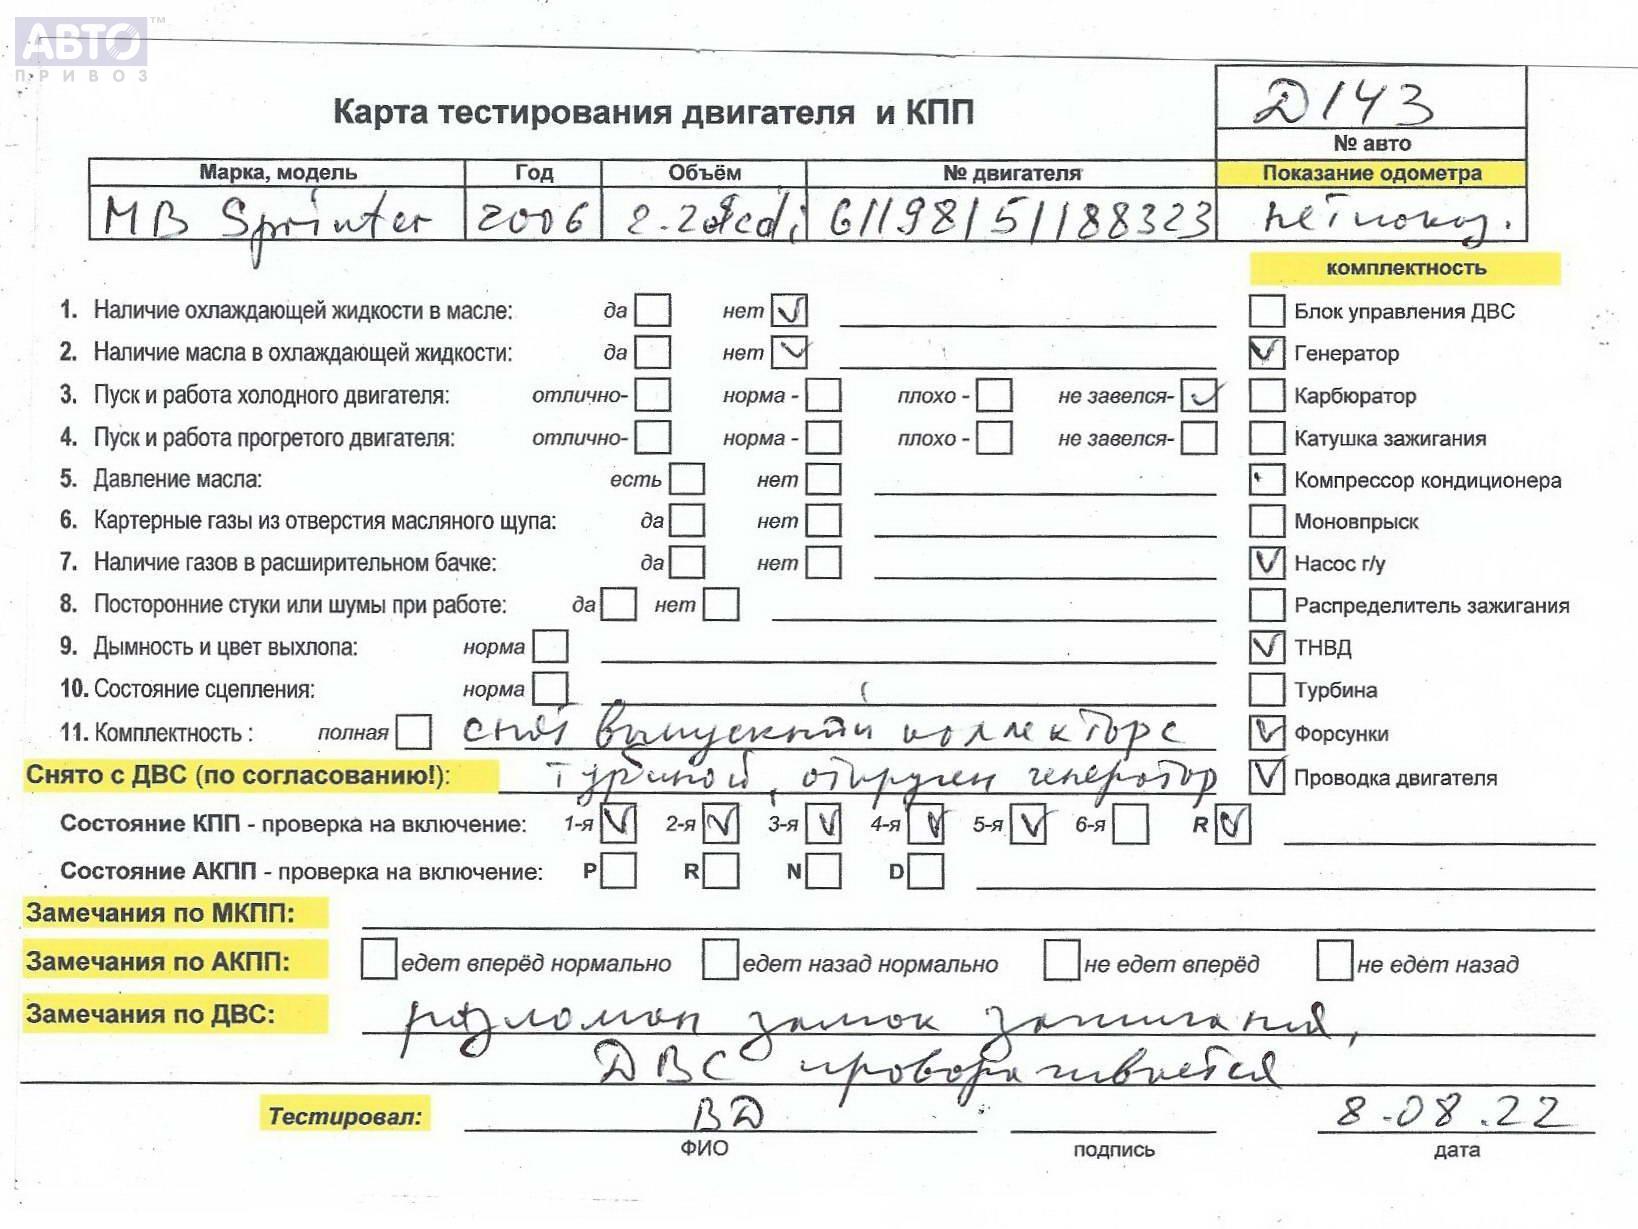 АВТО™
ПРИВОЗ
Карта тестирования двигателя и КПП
Д143
№ авто
Марка, модель Год Объём № двигателя Показание одометра
MB Sprinter 2006 2.2 cdi 61198151188323 нет показ.
комплектность
1. Наличие охлаждающей жидкости в масле: да нет
Блок управления ДВС
2. Наличие масла в охлаждающей жидкости: да нет
Генератор
3. Пуск и работа холодного двигателя: отлично- норма - плохо - не завелся-
Карбюратор
4. Пуск и работа прогретого двигателя: отлично- норма - плохо - не завелся-
Катушка зажигания
5. Давление масла: есть нет
Компрессор кондиционера
6. Картерные газы из отверстия масляного щупа: да нет
Моновпрыск
7. Наличие газов в расширительном бачке: да нет
Насос г/у
8. Посторонние стуки или шумы при работе: да нет
Распределитель зажигания
9. Дымность и цвет выхлопа: норма
ТНВД
10. Состояние сцепления: норма
Турбина
11. Комплектность : полная снят выпускной коллектор с
Форсунки
Снято с ДВС (по согласованию!): турбиной, откручен генератор
Проводка двигателя
Состояние КПП - проверка на включение: 1-я 2-я 3-я 4-я 5-я 6-я R
Состояние АКПП - проверка на включение: P R N D
Замечания по МКПП:
Замечания по АКПП: едет вперёд нормально едет назад нормально не едет вперёд не едет назад
Замечания по ДВС: разломан замок зажигания,
ДВС проворачивается
Тестировал: ВД 8-08.22
ФИО подпись дата